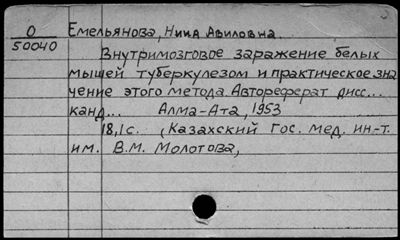 О
50040
Емельянова, Ника Авиловна.
Внутримозговое заражение белых
мышей туберкулезом и практическое зна
чение этого метода. Автореферат дисс...
канд... Алма-Ата, 1953
18,1с. (Казахский Гос. мед. ин.-т.
им. В.М. Молотова,